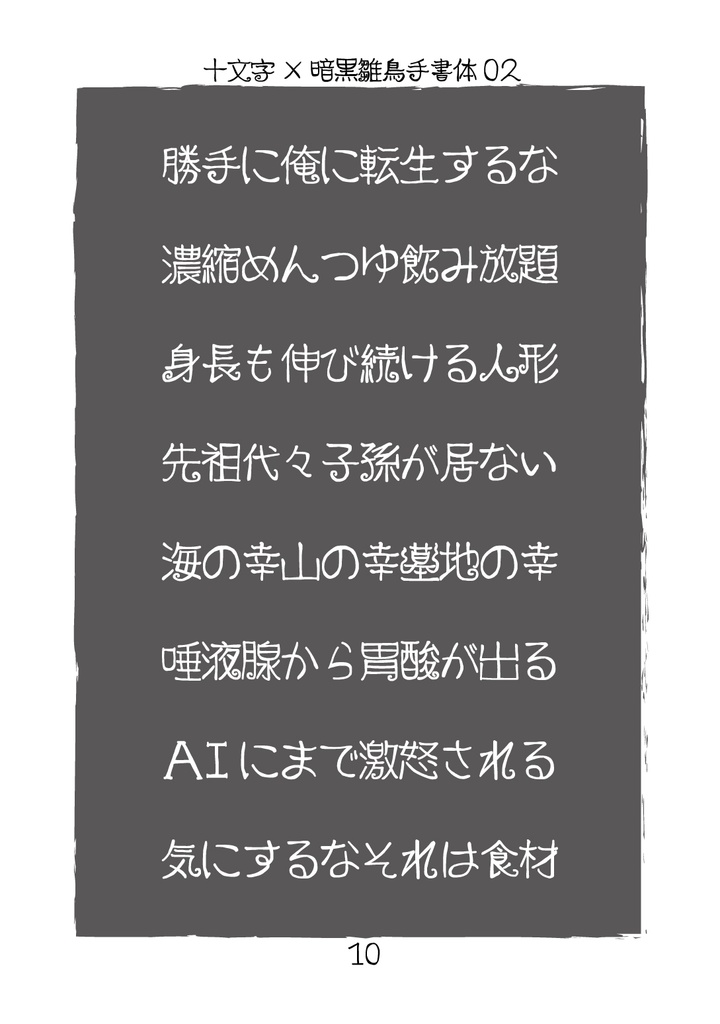 十文字×暗黒雛鳥手書体02
勝手に俺に転生するな
濃縮めんつゆ飲み放題
身長も伸び続ける人形
先祖代々子孫が居ない
海の幸山の幸墓地の幸
唾液腺から胃酸が出る
AIにまで激怒される
気にするなそれは食材
10